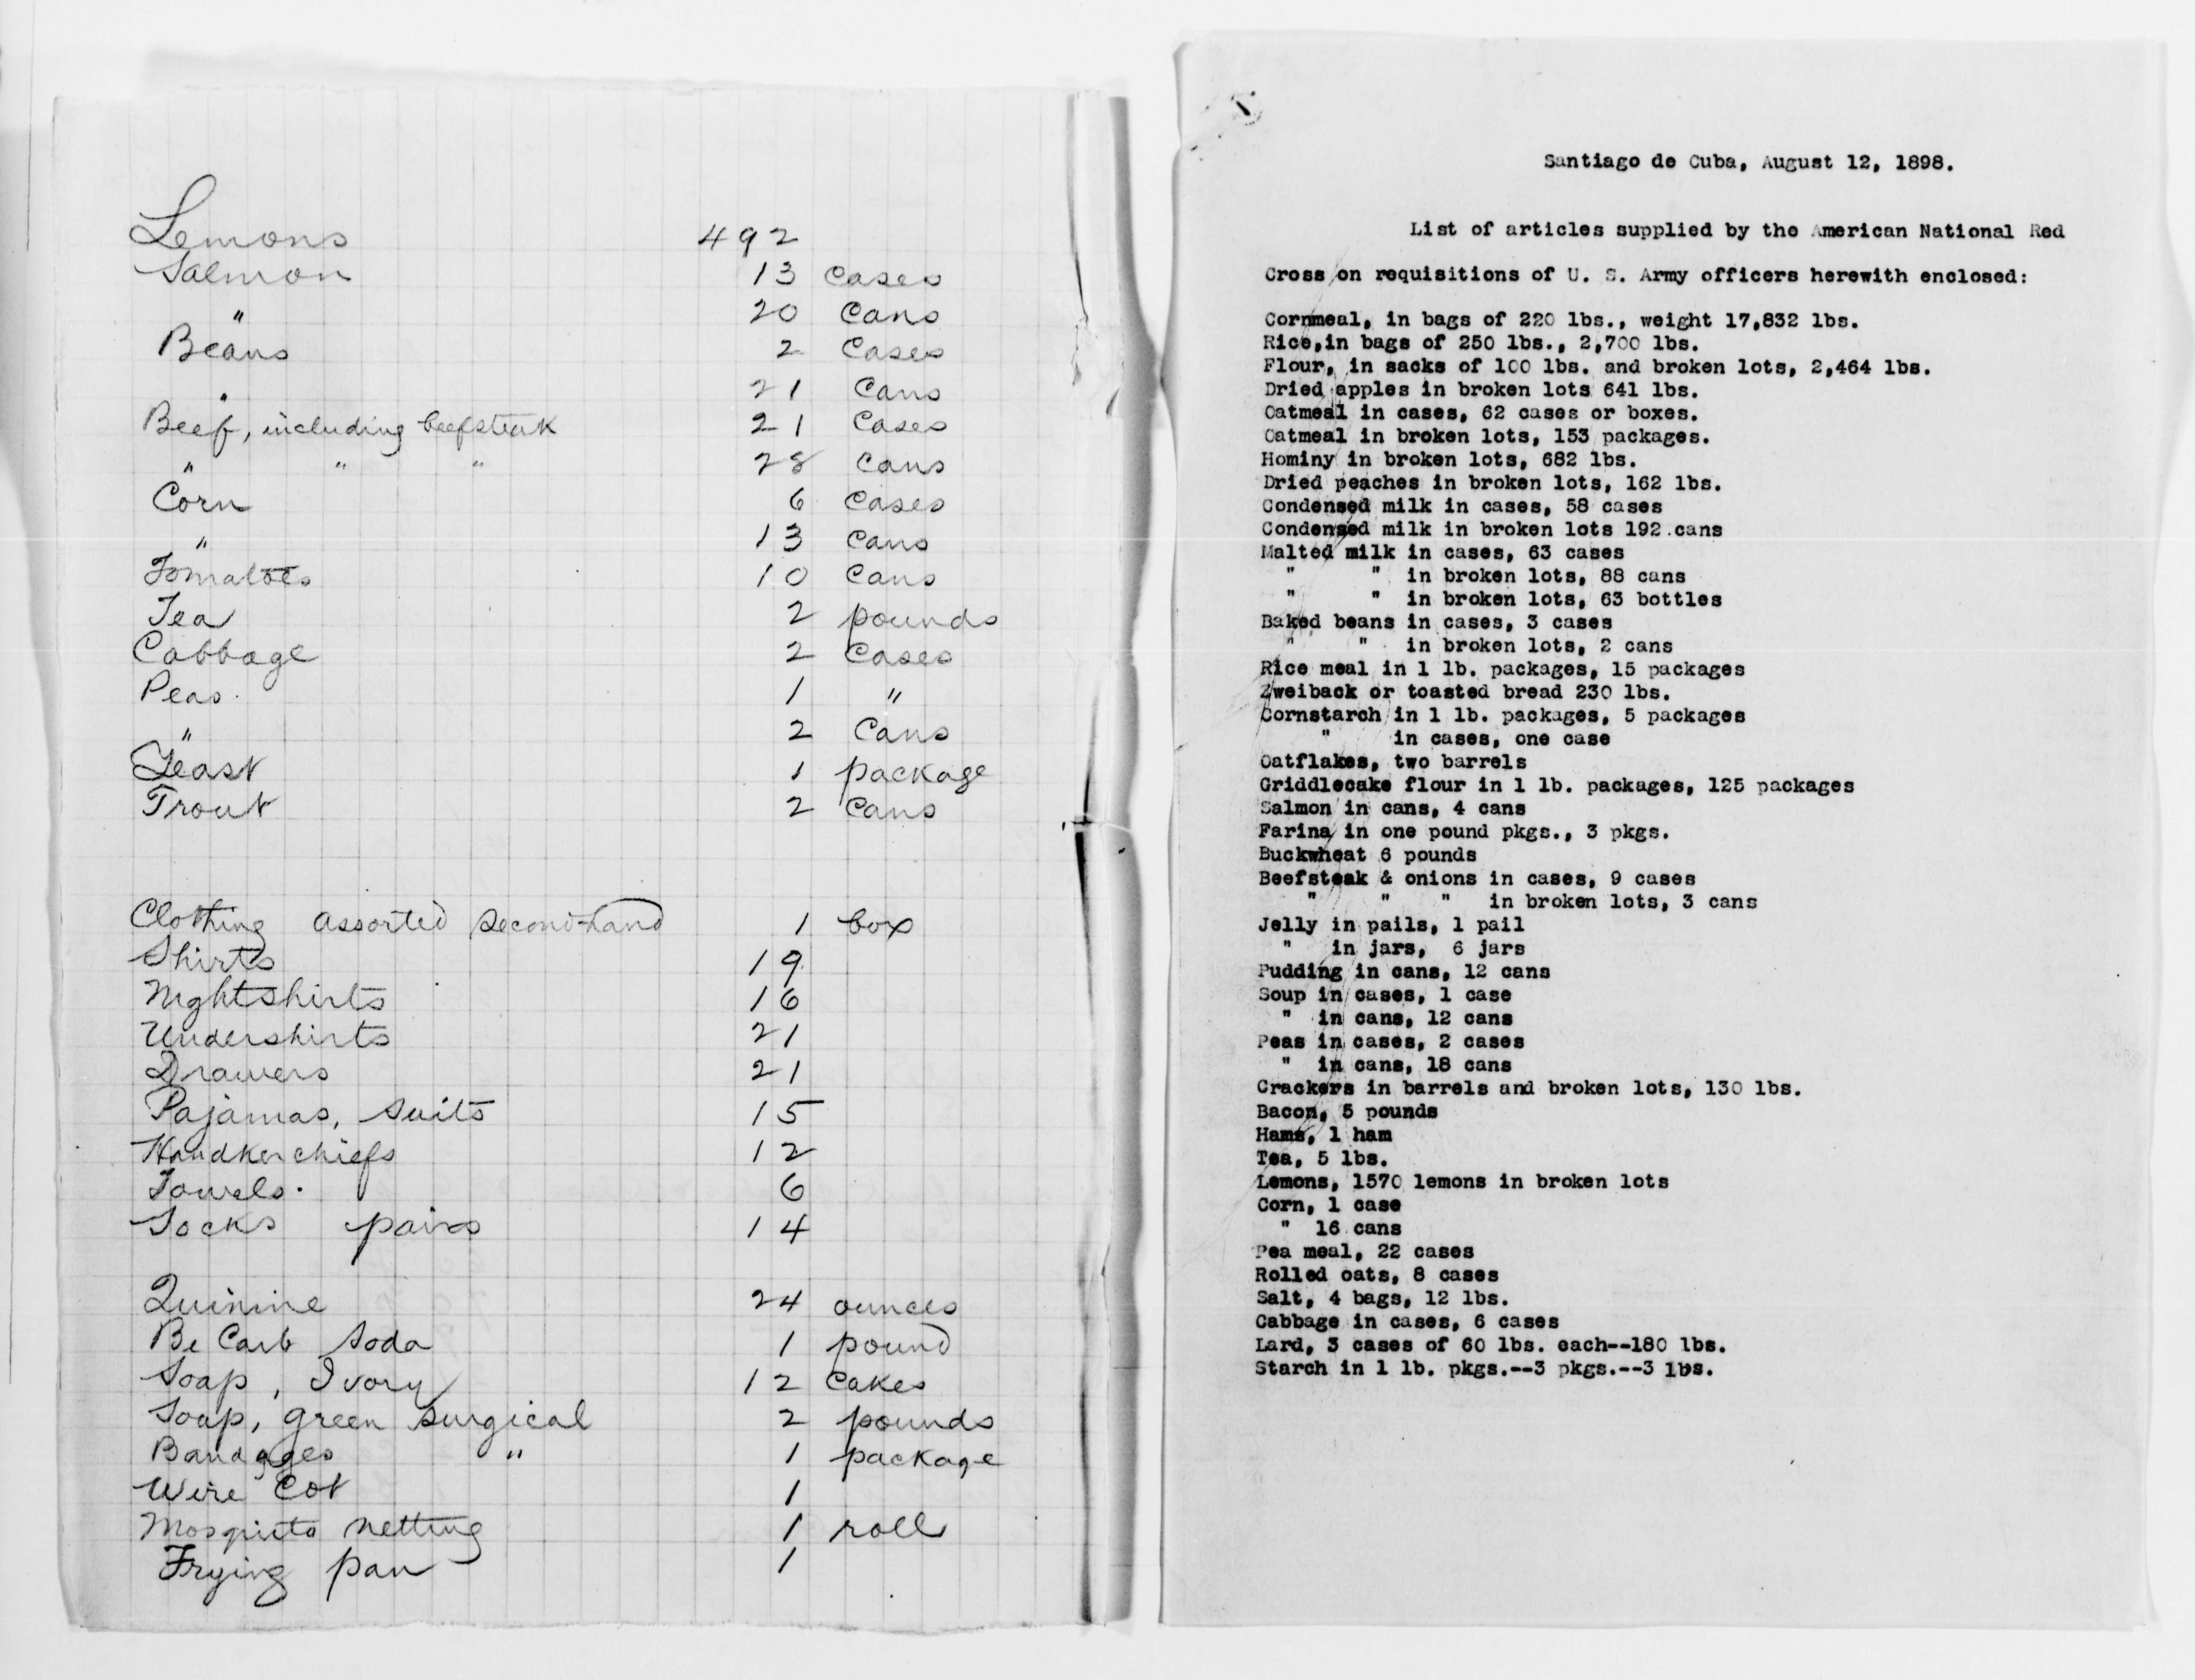 Lemons 492
Salmon 13 cases
" 20 cans
Beans 2 cases
" 21 cans
Beef, including beefsteak 21 cases
" " " 28 cans
Corn 6 cases
" 13 cans
Tomatoes 10 cans
Tea 2 pounds
Cabbage 2 cases
Peas. 1 "
" 2 cans
Yeast 1 package
Trout 2 cans
Clothing assorted second-hand 1 box
Shirts 19
Nightshirts 16
Undershirts 21
Drawers 21
Pajamas, suits 15
Handkerchiefs 12
Towels. 6
Socks pairs 14
Quinine 24 ounces
Bi Carb Soda 1 pound
Soap, Ivory 12 cakes
Soap, green surgical 2 pounds
Bandages " 1 package
Wire Cot 1
Mosquito netting 1 roll
Frying pan 1
Santiago de Cuba, August 12, 1898.
List of articles supplied by the American National Red
Cross on requisitions of U. S. Army officers herewith enclosed:
Cornmeal, in bags of 220 lbs., weight 17,832 lbs.
Rice,in bags of 250 lbs., 2,700 lbs.
Flour, in sacks of 100 lbs. and broken lots, 2,464 lbs.
Dried apples in broken lots 641 lbs.
Oatmeal in cases, 62 cases or boxes.
Oatmeal in broken lots, 153 packages.
Hominy in broken lots, 682 lbs.
Dried peaches in broken lots, 162 lbs.
Condensed milk in cases, 58 cases
Condensed milk in broken lots 192 cans
Malted milk in cases, 63 cases
" " in broken lots, 88 cans
" " in broken lots, 63 bottles
Baked beans in cases, 3 cases
" " in broken lots, 2 cans
Rice meal in 1 lb. packages, 15 packages
Zweiback or toasted bread 230 lbs.
Cornstarch in 1 lb. packages, 5 packages
" in cases, one case
Oatflakes, two barrels
Griddlecake flour in 1 lb. packages, 125 packages
Salmon in cans, 4 cans
Farina in one pound pkgs., 3 pkgs.
Buckwheat 6 pounds
Beefsteak & onions in cases, 9 cases
" " " in broken lots, 3 cans
Jelly in pails, 1 pail
" in jars, 6 jars
Pudding in cans, 12 cans
Soup in cases, 1 case
" in cans, 12 cans
Peas in cases, 2 cases
" in cans, 18 cans
Crackers in barrels and broken lots, 130 lbs.
Bacon, 5 pounds
Hams, 1 ham
Tea, 5 lbs.
Lemons, 1570 lemons in broken lots
Corn, 1 case
" 16 cans
Pea meal, 22 cases
Rolled oats, 8 cases
Salt, 4 bags, 12 lbs.
Cabbage in cases, 6 cases
Lard, 3 cases of 60 lbs. each--180 lbs.
Starch in 1 lb. pkgs.--3 pkgs.--3 lbs.